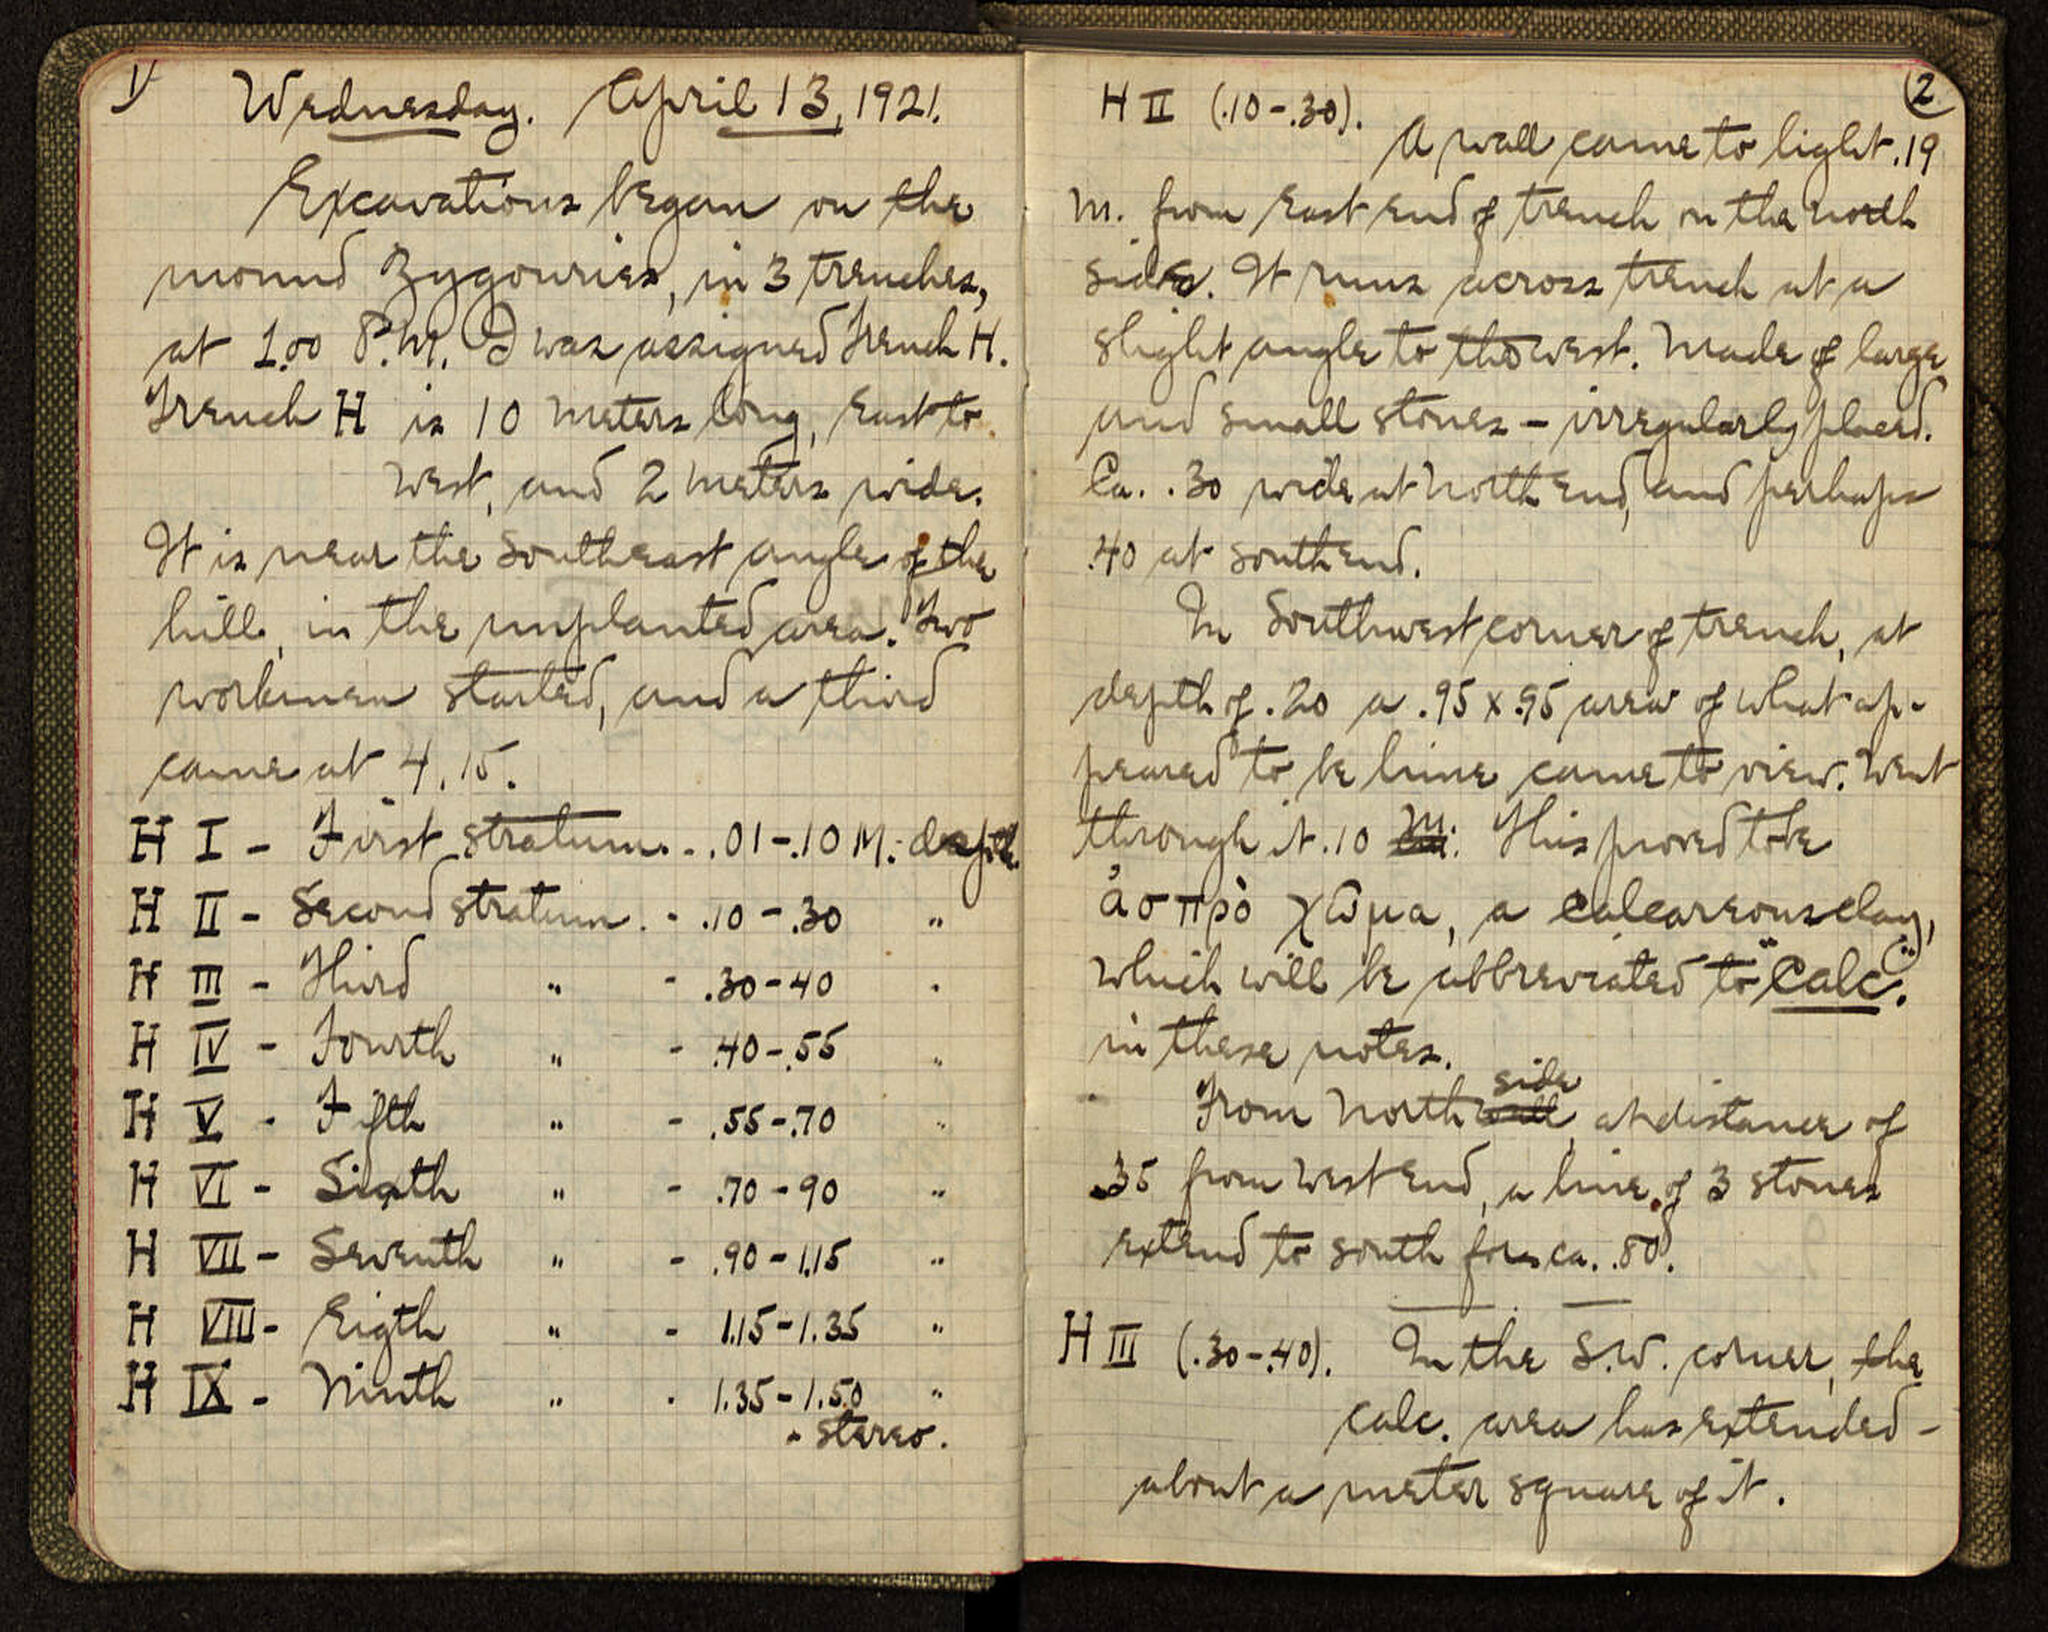 1
Wednesday. April 13, 1921.
Excavations began on the
mound Zygouries, in 3 trenches,
at 1.00 P.M. I was assigned Trench H.
Trench H is 10 meters long, East to
West, and 2 meters wide.
It is near the Southeast angle of the
hill, in the unplanted area. Two
workmen started, and a third
came at 4.15.
H I - First stratum. - .01-.10 M. depth
H II - Second stratum. - .10-.30 "
H III - Third " - .30-40 "
H IV - Fourth " - .40-.55 "
H V - Fifth " - .55-.70 "
H VI - Sixth " - .70-90 "
H VII - Seventh " - .90-1.15 "
H VIII - Eigth " - 1.15-1.35 "
H IX - Ninth " - 1.35-1.50 "
- stereo.
2
H II (.10-.30).
A wall came to light .19
m. from East end of trench on the north
side. It runs across trench at a
slight angle to the west. Made of large
and small stones - irregularly placed.
Ca. .30 wide at North end, and perhaps
.40 at south end.
In Southwest corner of trench, at
depth of .20 a .95 x .95 area of what ap-
peared to be lime came to view. Went
through it .10 M. This proved to be
ἀσπρὸ χῶμα, a calcareous clay,
which will be abbreviated to "Calc."
in these notes.
side
From North wall, at distance of
.35 from West end, a line of 3 stones
extend to south for ca. .80.
H III (.30-.40). In the S.W. corner, the
calc. area has extended -
about a meter square of it.